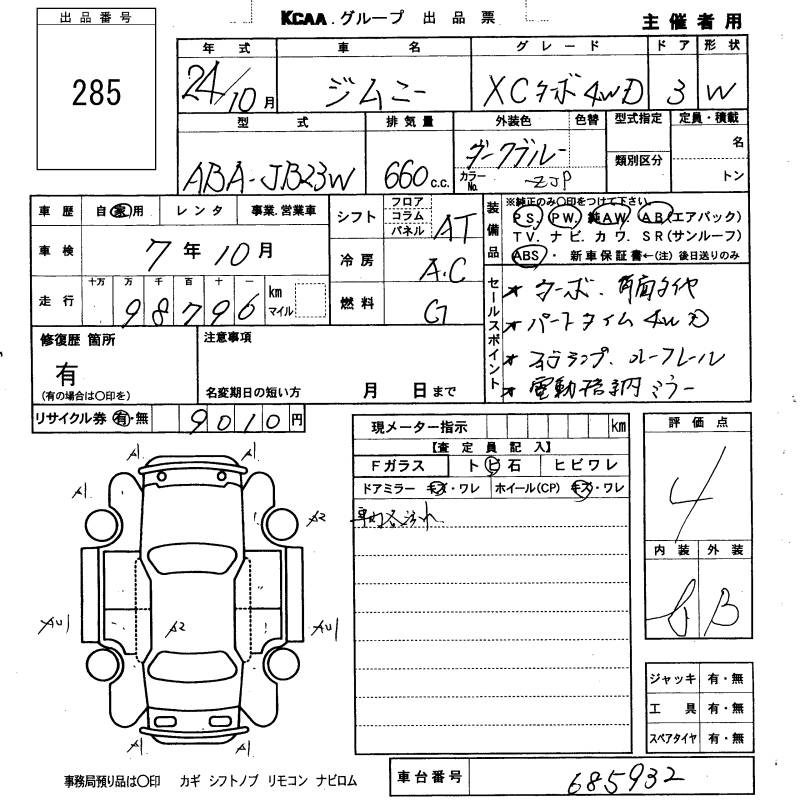 出品番号
285
KCAA.グループ 出品票
主催者用
年式 車名 グレード ドア 形状
24/10月 ジムニー XCターボ4WD 3 W
型式 排気量 外装色 色替 型式指定 定員・積載
ABA-JB23W 660c.c. ダークブルー 名
カラーNo. ZJP 類別区分 トン
車歴 自家用 レンタ 事業.営業車
車検 7年10月
走行 十万 万 千 百 十 一 km マイル
98796
シフト フロア コラム パネル AT
冷房 A.C
燃料 G
装備品 ※純正のみ○印をつけて下さい。
PS. PW. 純AW. AB(エアバック)
TV. ナビ. カワ. SR(サンルーフ)
ABS・ 新車保証書←(注)後日送りのみ
セールスポイント
ターボ、
パートタイム4WD
ルーフレール
電動格納ミラー
修復歴 箇所
有
(有の場合は○印を)
注意事項
名変期日の短い方 月 日まで
リサイクル券 有・無 9010円
現メーター指示 km
【査定員記入】
Fガラス トビ石 ヒビワレ
ドアミラー キズ・ワレ ホイール(CP) キズ・ワレ
評価点
4
内装 外装
B
A1 A1
A1 A1
A2
AU1 A2 AU1
A1 A1
ジャッキ 有・無
工具 有・無
スペアタイヤ 有・無
事務局預り品は○印 カギ シフトノブ リモコン ナビロム
車台番号 685932